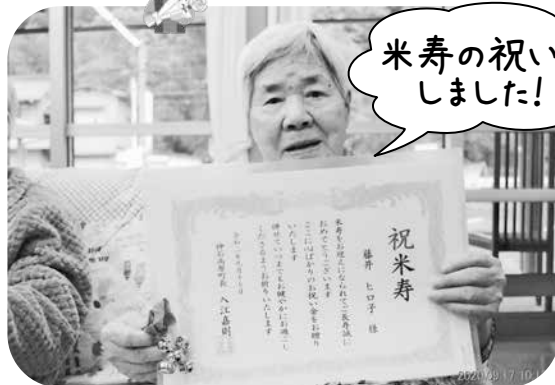 米寿の祝い
しました!
祝米寿
藤井 ヒロ子 様
米寿をお迎えになられてご長寿誠に
おめでとうございます
ここに心ばかりのお祝い金をお贈り
いたします
併せていつまでもお健やかにお過ごし
くださるようお祈りいたします
神石高原町長 入江嘉則
2020/09/17 10